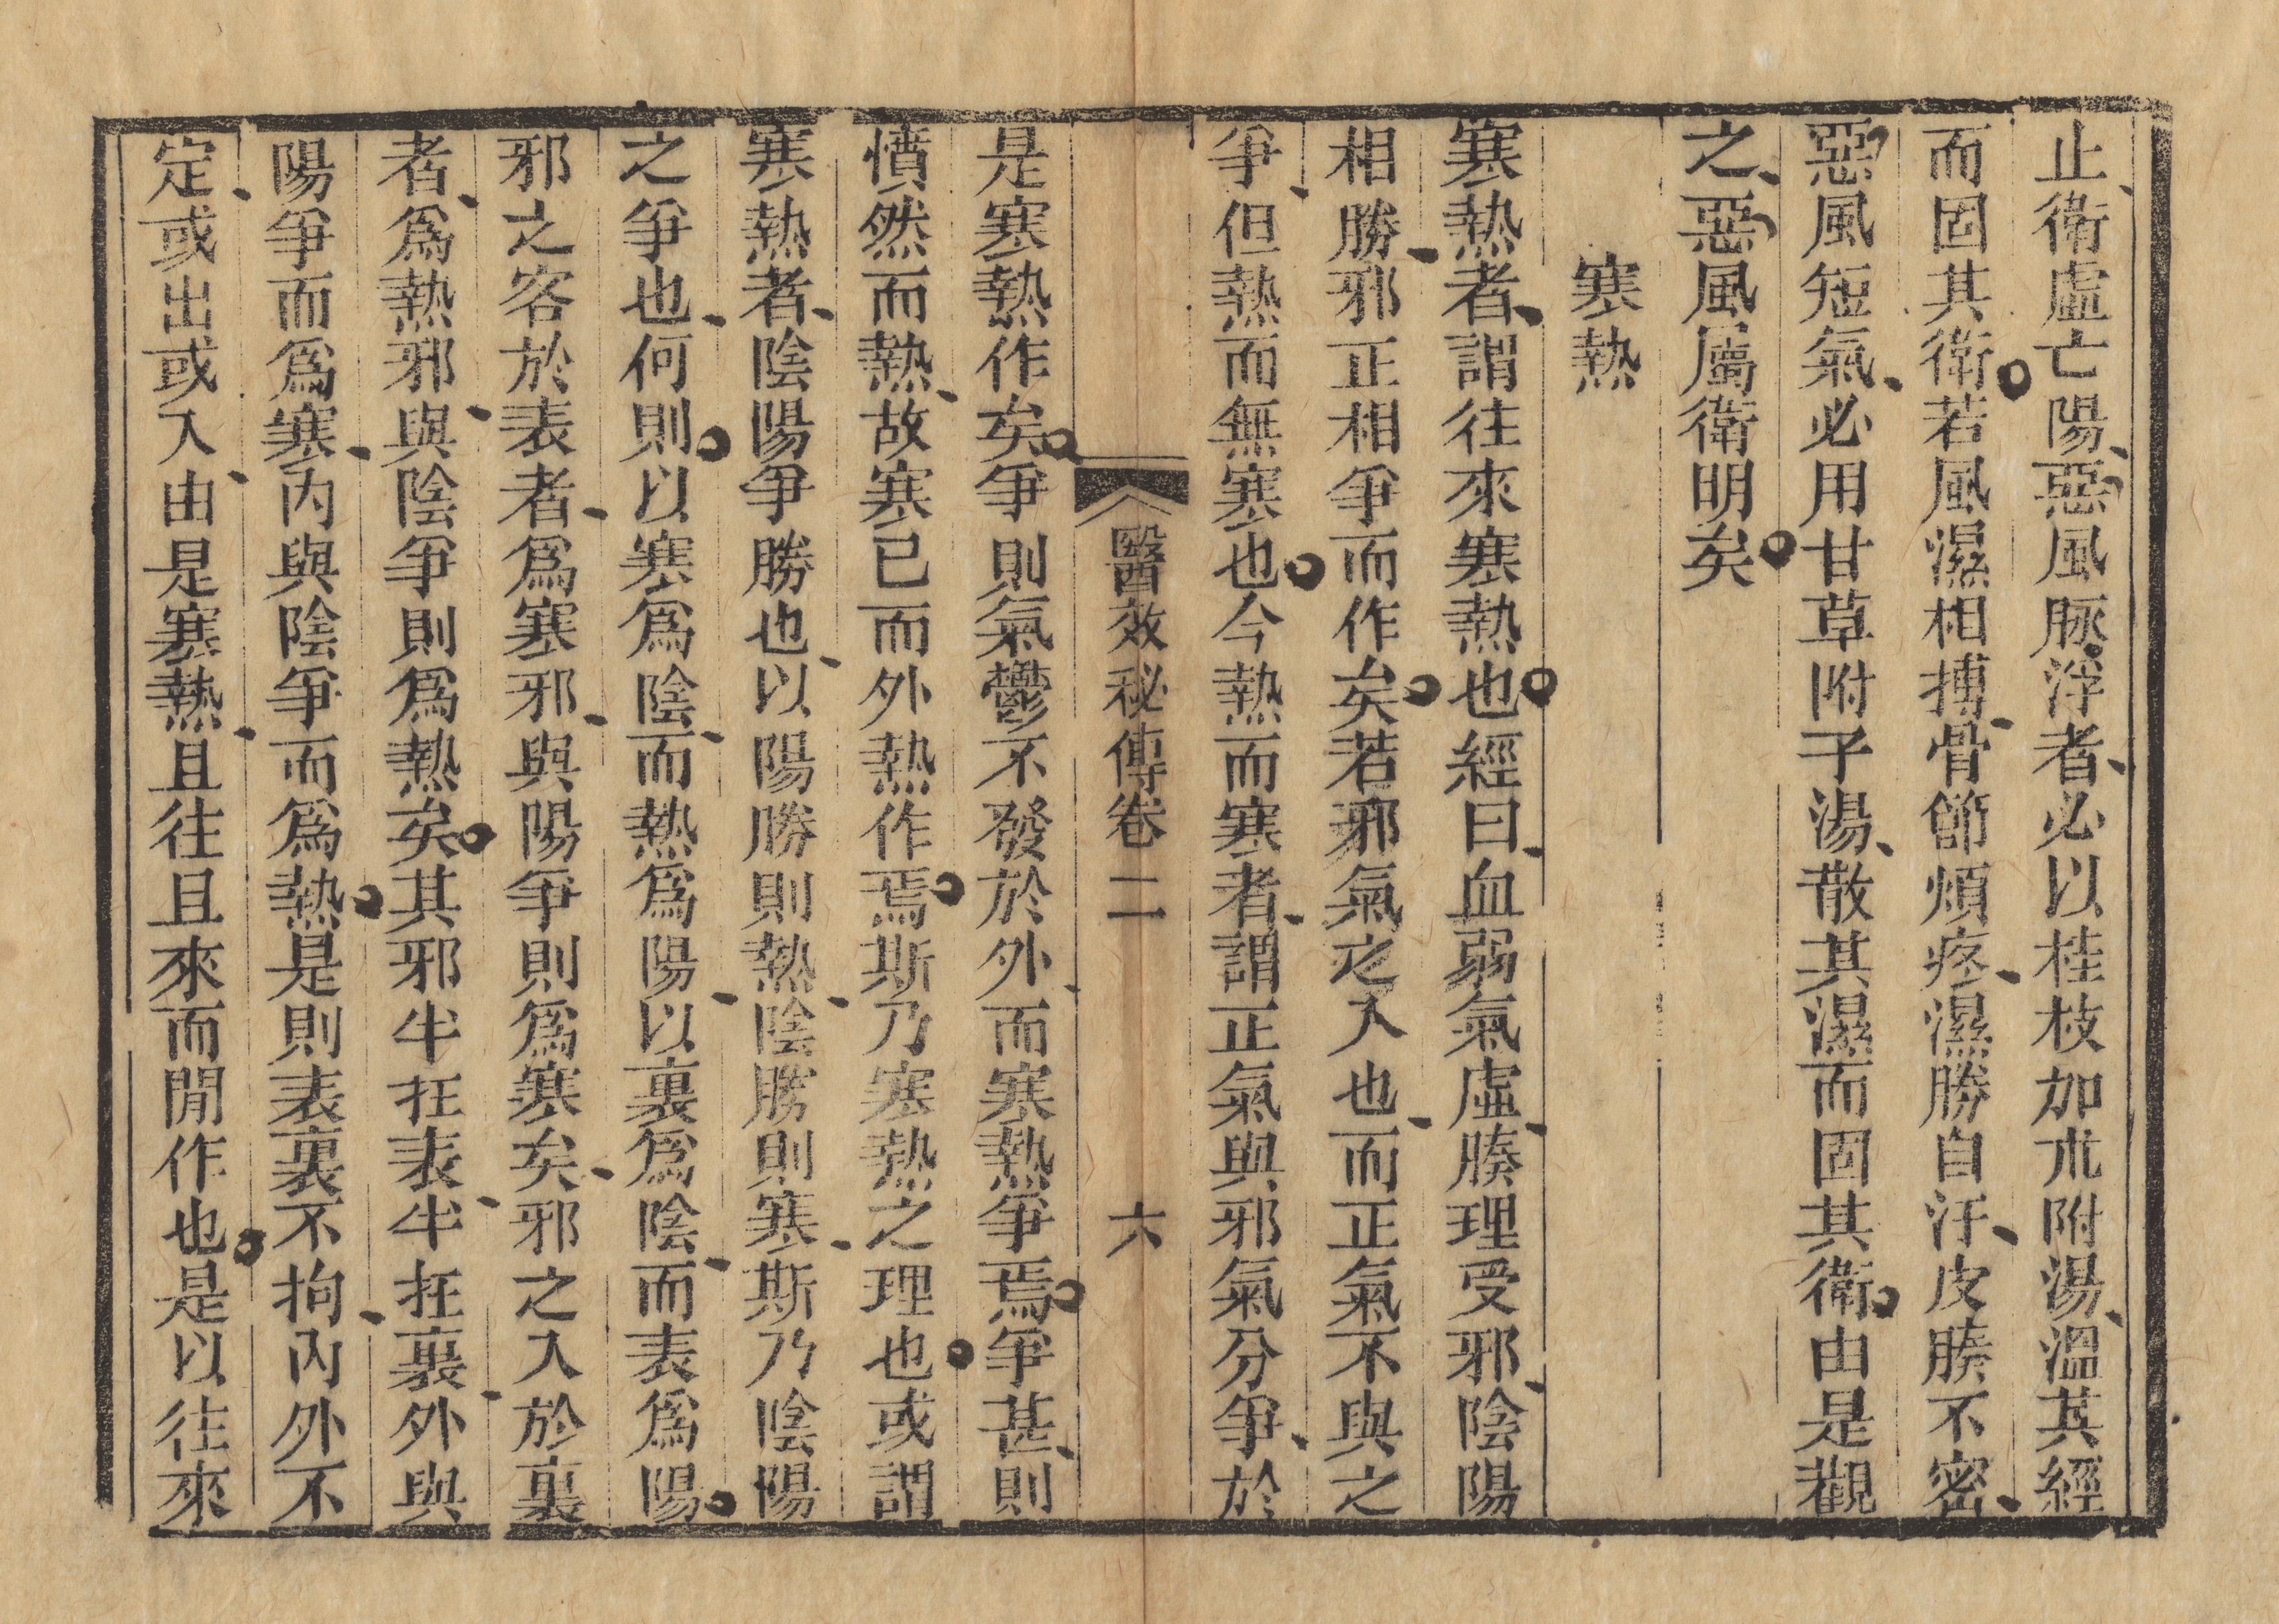 止衛虛亡陽惡風脈浮者必以桂枝加朮附湯溫其經
而固其衛若風濕相搏骨節煩疼濕勝自汗皮腠不密
惡風短氣必用甘草附子湯散其濕而固其衛由是觀
之惡風屬衛明矣
寒熱
寒熱者謂往來寒熱也經曰血弱氣虛腠理受邪陰陽
相勝邪正相爭而作矣若邪氣之入也而正氣不與之
爭但熱而無寒也今熱而寒者謂正氣與邪氣分爭於
醫效秘傳卷二 六
是寒熱作矣爭則氣鬱不發於外而寒熱爭焉爭甚則
憤然而熱故寒已而外熱作焉斯乃寒熱之理也或謂
寒熱者陰陽爭勝也以陽勝則熱陰勝則寒斯乃陰陽
之爭也何則以寒為陰而熱為陽以裏為陰而表為陽
邪之客於表者為寒邪與陽爭則為寒矣邪之入於裏
者為熱邪與陰爭則為熱矣其邪半在表半在裏外與
陽爭而為寒內與陰爭而為熱是則表裏不拘內外不
定或出或入由是寒熱且往且來而間作也是以往來